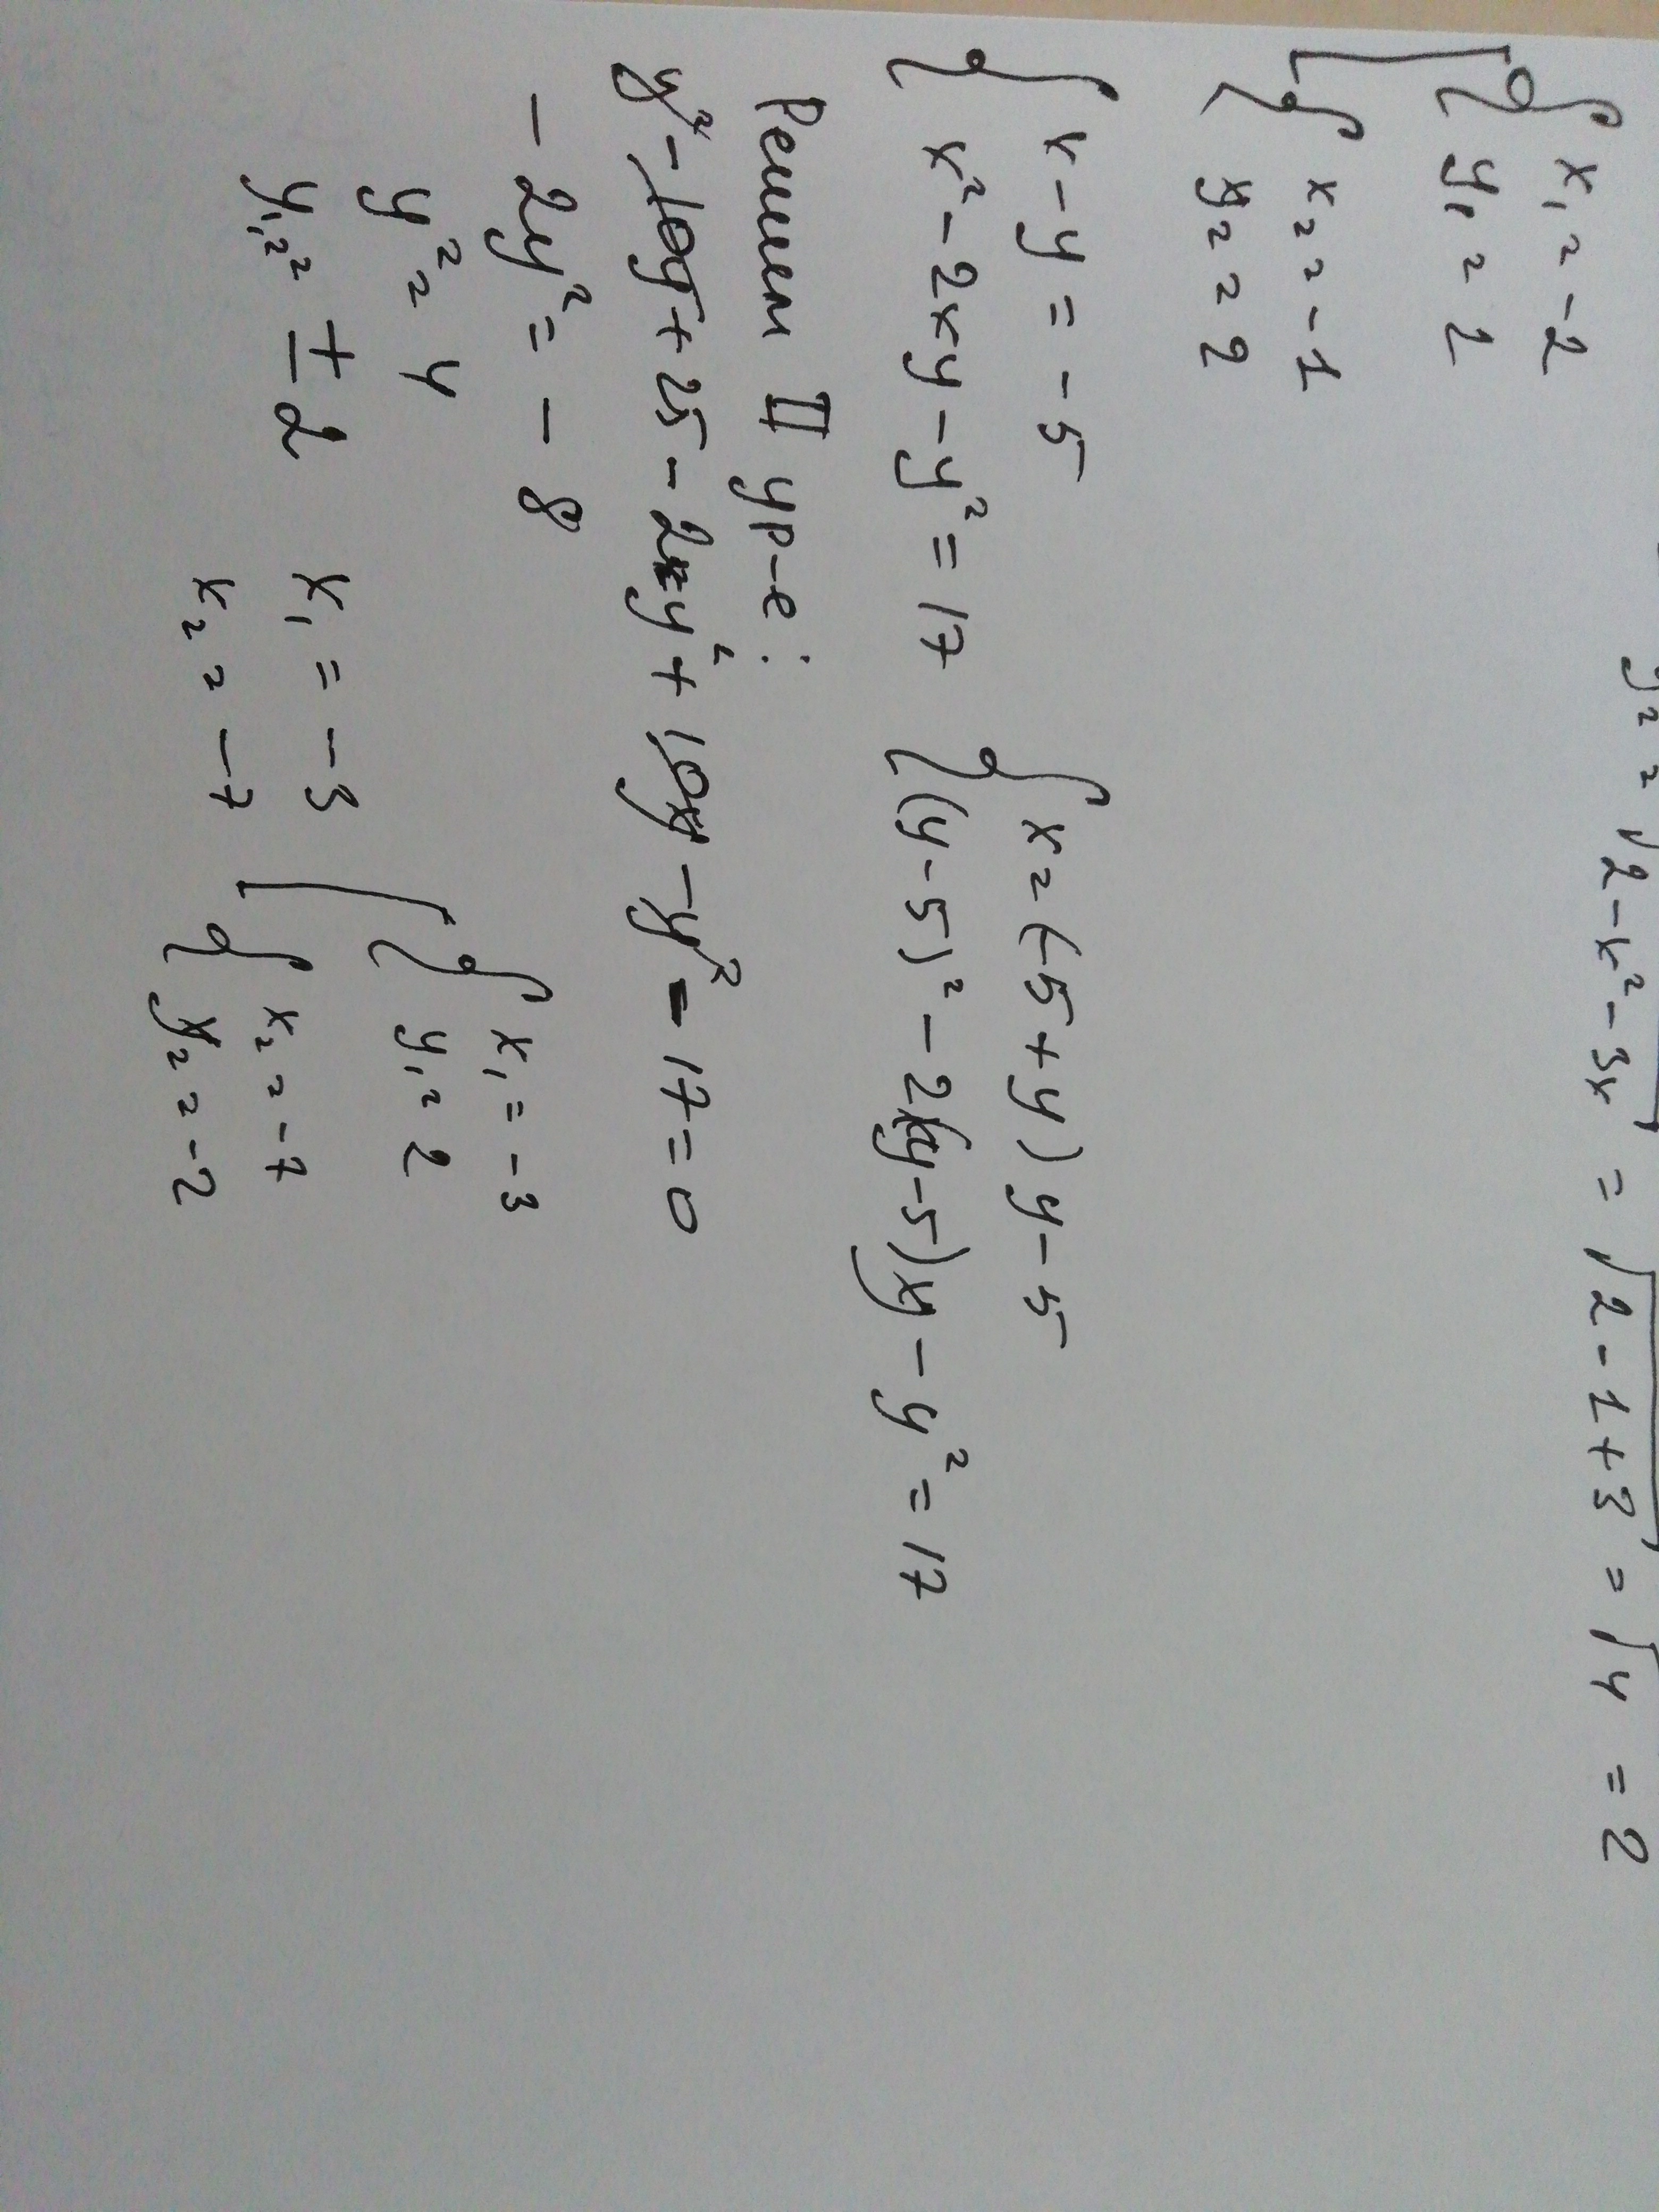 y₂ = √2-x²-3x = √2-1+3 = √4 = 2
{ x₁ = -2
y₁ = 1
{ x₂ = -1
y₂ = 2
{ x-y = -5 { x = (-5+y) y-5
x²-2xy-y² = 17 (y-5)²-2(y-5)y-y² = 17
Решим II ур-е:
y²-10y+25-2y²+10y-y²-17=0
-2y² = -8
y² = 4
y₁,₂ = ±2
x₁ = -3
x₂ = -7
{ x₁ = -3
y₁ = 2
{ x₂ = -7
y₂ = -2